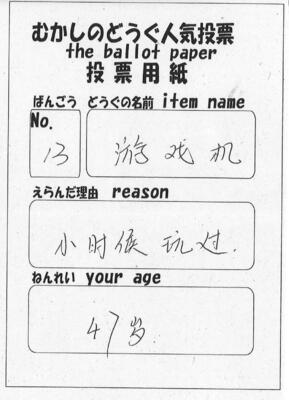 むかしのどうぐ人気投票
the ballot paper
投票用紙
ばんごう どうぐの名前 item name
No.
13 游戏机
えらんだ理由 reason
小时候玩过.
ねんれい your age
47岁